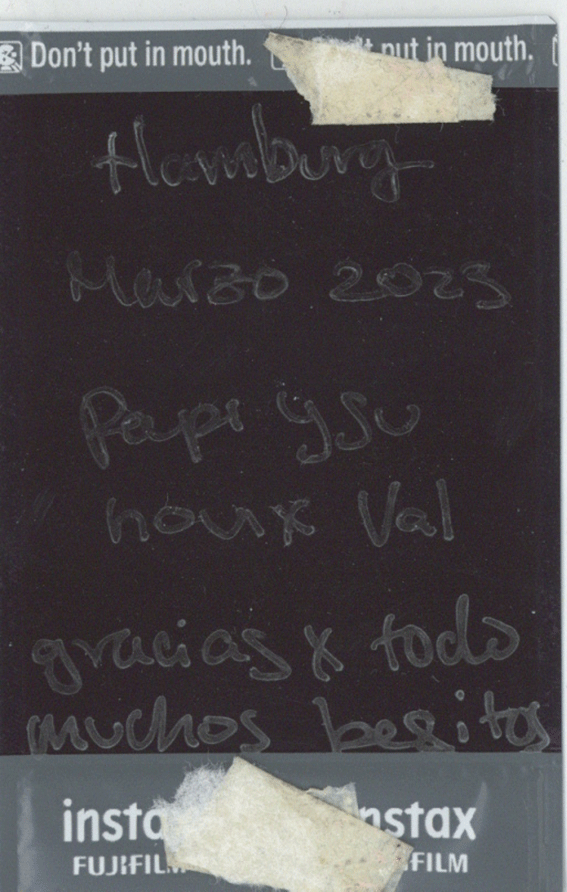 Don't put in mouth. Don't put in mouth.
Hamburg
Marzo 2023
Papi y su
novix Val
gracias x todo
muchos besitos
instax instax
FUJIFILM FUJIFILM